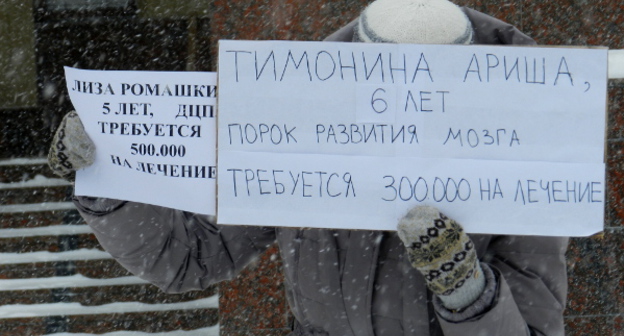 ЛИЗА РОМАШКИ
5 ЛЕТ, ДЦП
ТРЕБУЕТСЯ
500.000
НА ЛЕЧЕНИЕ
ТИМОНИНА АРИША,
6 ЛЕТ
ПОРОК РАЗВИТИЯ МОЗГА
ТРЕБУЕТСЯ 300000 НА ЛЕЧЕНИЕ